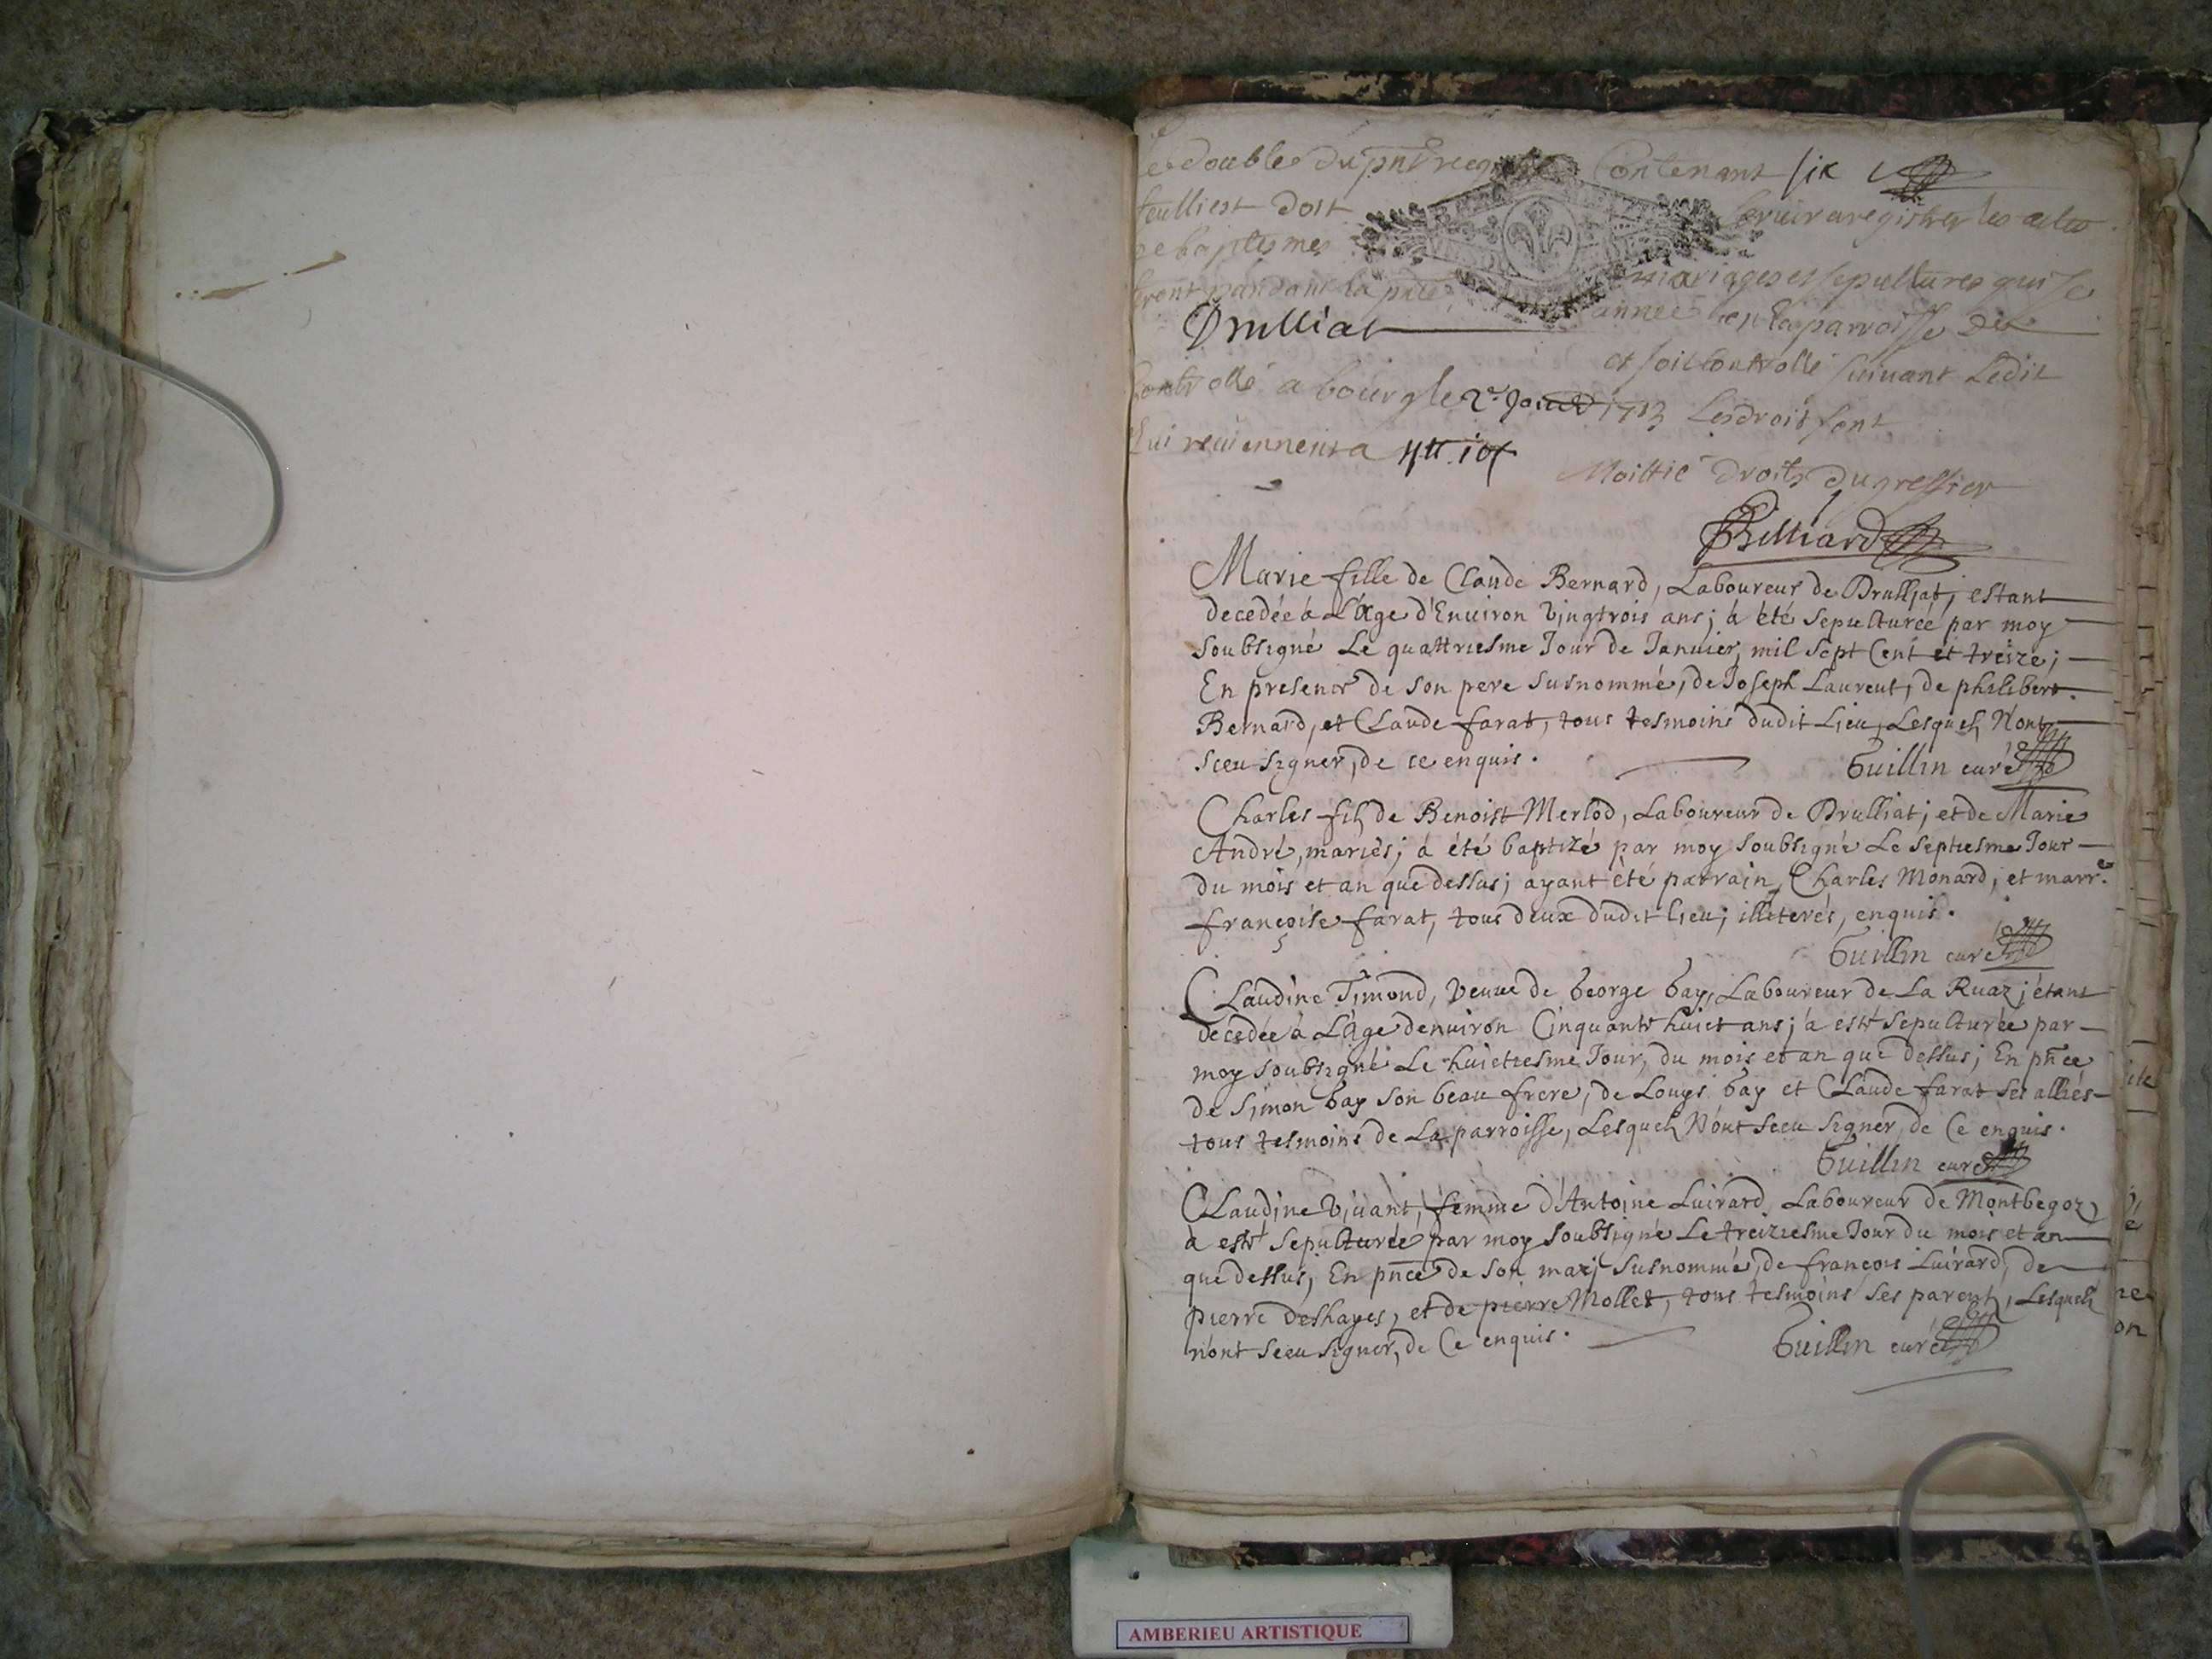 le double du pnt regre Contenant six
feulliest doit servir a registrer les actes
de baptesmes mariages et sepultures qui se
feront pandant la pnte année en la parroisse de
Drulliat et soit controllé suivant Ledit
Controllé a bourg le 2e 1713 Les droits sont
qui reviennent a
Moittié droits du greffier
Billiard
Marie fille de Claude Bernard, Laboureur de Drulljat; estant
decedée à L'âge d'Enuiron vjngtrois ans; à été sepulturée par moy
soubsigné Le quattriesme Jour de Januier, mil sept Cent et treize;
En presence de son pere susnommé, de Joseph Laurent, de philibert
Bernard, et Claude farat, tous tesmoins dudit Lieu, Lesquels N'ont
sceu signer, de ce enquis. Guillin curé
Charles fils de Benoist Merlod, Laboureur de Drulliat; et de Marie
André, mariés; à été baptizé par moy soubsigné Le septiesme Jour
du mois et an que dessus; ayant été parrain, Charles Monard, et marr.e
françoise farat, tous deux dudit lieu; illiterés, enquis.
Guillin curé
Claudine Timond, veuue de George Gay, Laboureur de La Ruaz; étant
décédée à L'âge denuiron Cinquante huict ans; à esté sepulturée par
moy soubsigné Le huictiesme Jour, du mois et an que dessus; En pnce
de Simon Gay son beau frere, de Louys Gay et Claude farat ses alliés
tous tesmoins de La parroisse, Lesquels N'ont sceu signer, de Ce enquis.
Guillin curé
Claudine Viuant, femme d'Antoine Luirard, Laboureur de Montbegoz,
à esté sepulturée par moy soubsigné Le treiziesme Jour du mois et an
que dessus, En pnce de son marj susnommé, de françois Luirard, de
pierre deshayes, et de pierre Mollet, tous tesmoins ses parents, Lesquels
n'ont sceu signer, de Ce enquis. Guillin curé
AMBERIEU ARTISTIQUE